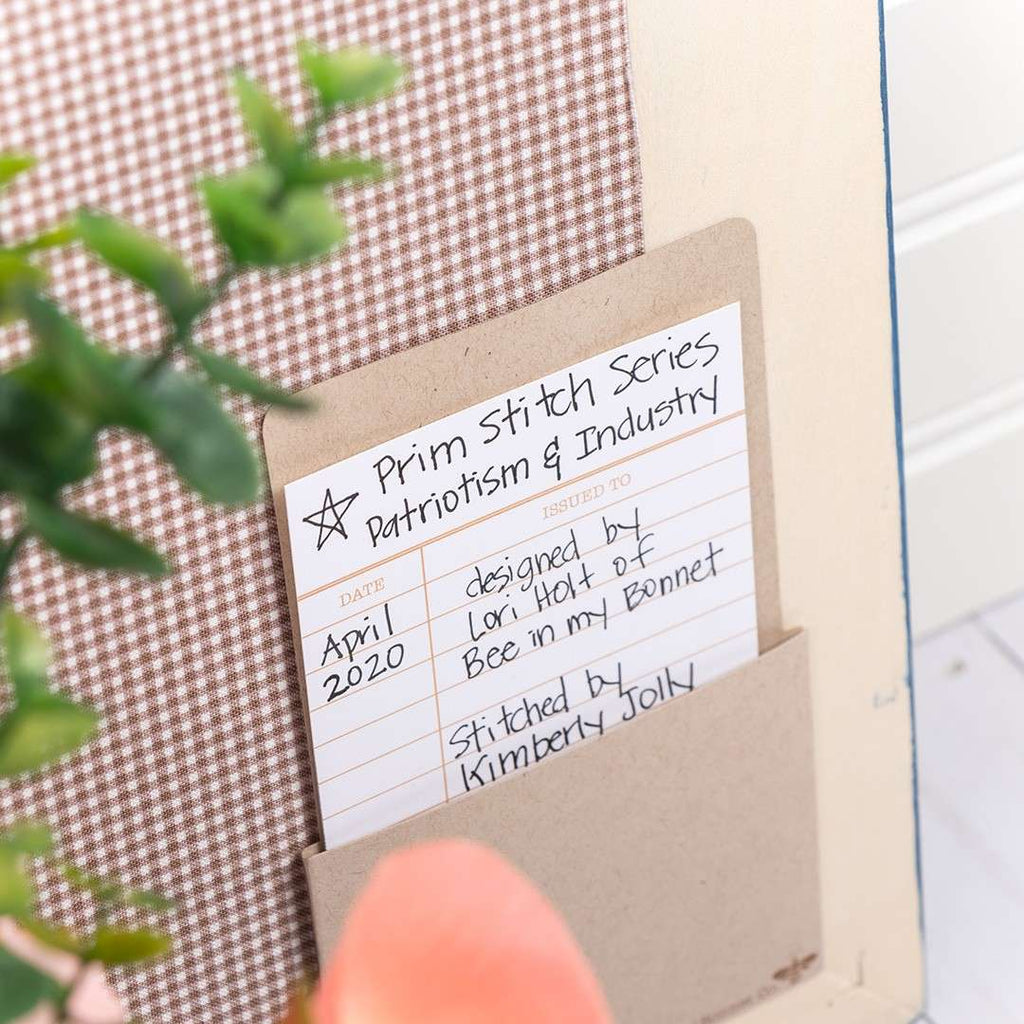 Prim Stitch Series
Patriotism & Industry
ISSUED TO
DATE
designed by
Lori Holt of
Bee in my Bonnet
April
2020
Stitched by
Kimberly Jolly